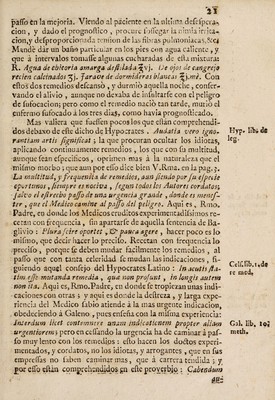 22
passo en la mejoria. Viendo al paciente en la ultima desespera-
cion, y dado el pronostico, procure sossegar la nimia irrita-
cion, y desproporcionada tension de las fibras pulmoniacas,
Mandè dàr un baño particular en los pies con agua caliente, y
que à intervalos tomasse algunas cucharadas de esta mixtura:
R. Agua de chicoria amarga destilada De ojos de cangrejo
recien calcinados Jarave de dormideras blancas Con
estos dos remedios descansò, y durmiò aquella noche, conser-
vando el alivio, aunque no dexaba de insultarle con el peligro
de sufocacion; pero como el remedio naciò tan tarde, muriò el
enfermo sufocado à los tres dias, como havia pronosticado.
Mas valiera que fuessen pocos los que están comprehendi-
dos debaxo de este dicho de Hypocrates. Audatia vero igno-
rantiam artis significat; la que procuran ocultar los idiotas,
aplicando continuamente remedios, los que con su multitud,
aunque sean especificos, oprimen mas à la naturaleza que el
mismo morbo; que aun por esso dice bien V.Rma. en la pag.
La multitud, y frequencia de remedios, aun siendo por su especie
oportunos, siempre es nociva, segun todos los Autores cordatos;
salvo el estrecho passo de una urgencia grande, donde es menes-
ter, que el Medico camine al passo del peligro. Aqui es, Rmo.
Padre, en donde los Medicos eruditos experimentadissimos re-
cetan con frequencia, sin apartarse de aquella sentencia de Ba-
glivio: Plura scire oportet, & pauca agere, hacer poco es lo
mismo, que decir hacer lo preciso. Recetan con frequencia lo
preciso, porque se deben mudar facilmente los remedios, al
passo que con tanta celeridad se mudan las indicaciones, si-
guiendo aquel consejo del Hypocrates Latino: In acutis sta-
tim esse mutanda remedia, quæ non prosunt, in longis autem
non ita. Aqui es, Rmo.Padre, en donde se tropiezan unas indi-
caciones con otras; y aqui es donde la destreza, y larga expe-
riencia del Medico sabio atiende à la mas urgente indicacion,
obedeciendo à Galeno, pues enseña con la misma experiencia:
Interdum licet contemnere unam indicationem propter aliam
urgentiorem; pero en cessando la urgencia ha de caminar à pas-
so muy lento con los remedios: esto hacen los doctos experi-
mentados, y cordatos, no los idiotas, y arrogantes, que en sus
empressas no saben caminar mas, que à carrera tendida; y
por esso están comprehendidos en este proverbio: Cabendum
Hyp. lib. de
leg.
Cels. lib. 1. de
re med.
Gal. lib. 10.
meth.